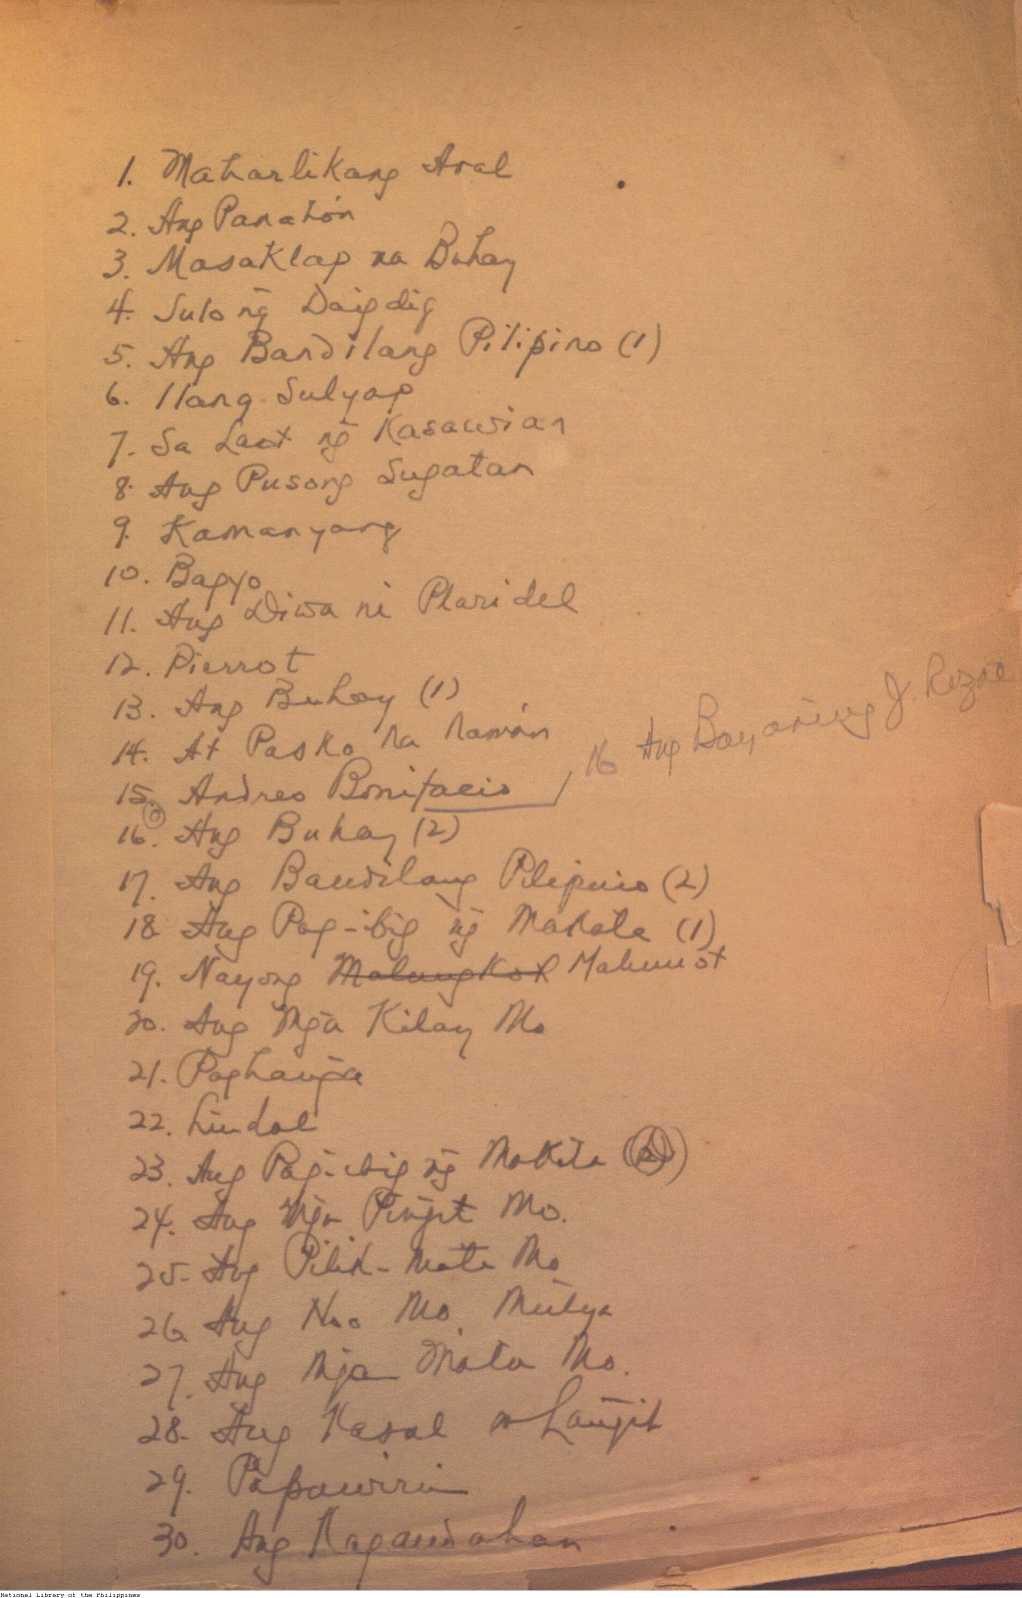 1. Maharlikang Aral
2. Ang Panahón
3. Masaklap na Buhay
4. Sulo ng̃ Daigdig
5. Ang Bandilang Pilipino (1)
6. Ilang Sulyap
7. Sa Laot ng̃ Kasawian
8. Ang Pusong Sugatan
9. Kamanyang
10. Bagyo
11. Ang Diwa ni Plaridel
12. Pierrot
13. Ang Buhay (1)
14. At Pasko na namán
15. Andres Bonifacio / 16 Ang Bayaning J. Rizal
16. Ang Buhay (2)
17. Ang Bandilang Pilipino (2)
18. Ang Pag-ibig ng̃ Makata (1)
19. Nayong Malungkot Malumot
20. Ang Mg̃a Kilay Mo
21. Paghang̃a
22. Lindol
23. Ang Pag-ibig ng̃ Makata (2)
24. Ang Mg̃a Pisng̃i Mo.
25. Ang Pilik-mata Mo
26. Ang Noo Mo, Mutya
27. Ang Mg̃a Mata Mo.
28. Ang Kasal sa Lang̃it
29. Papawirin
30. Ang Kagandahan
National Library of the Philippines